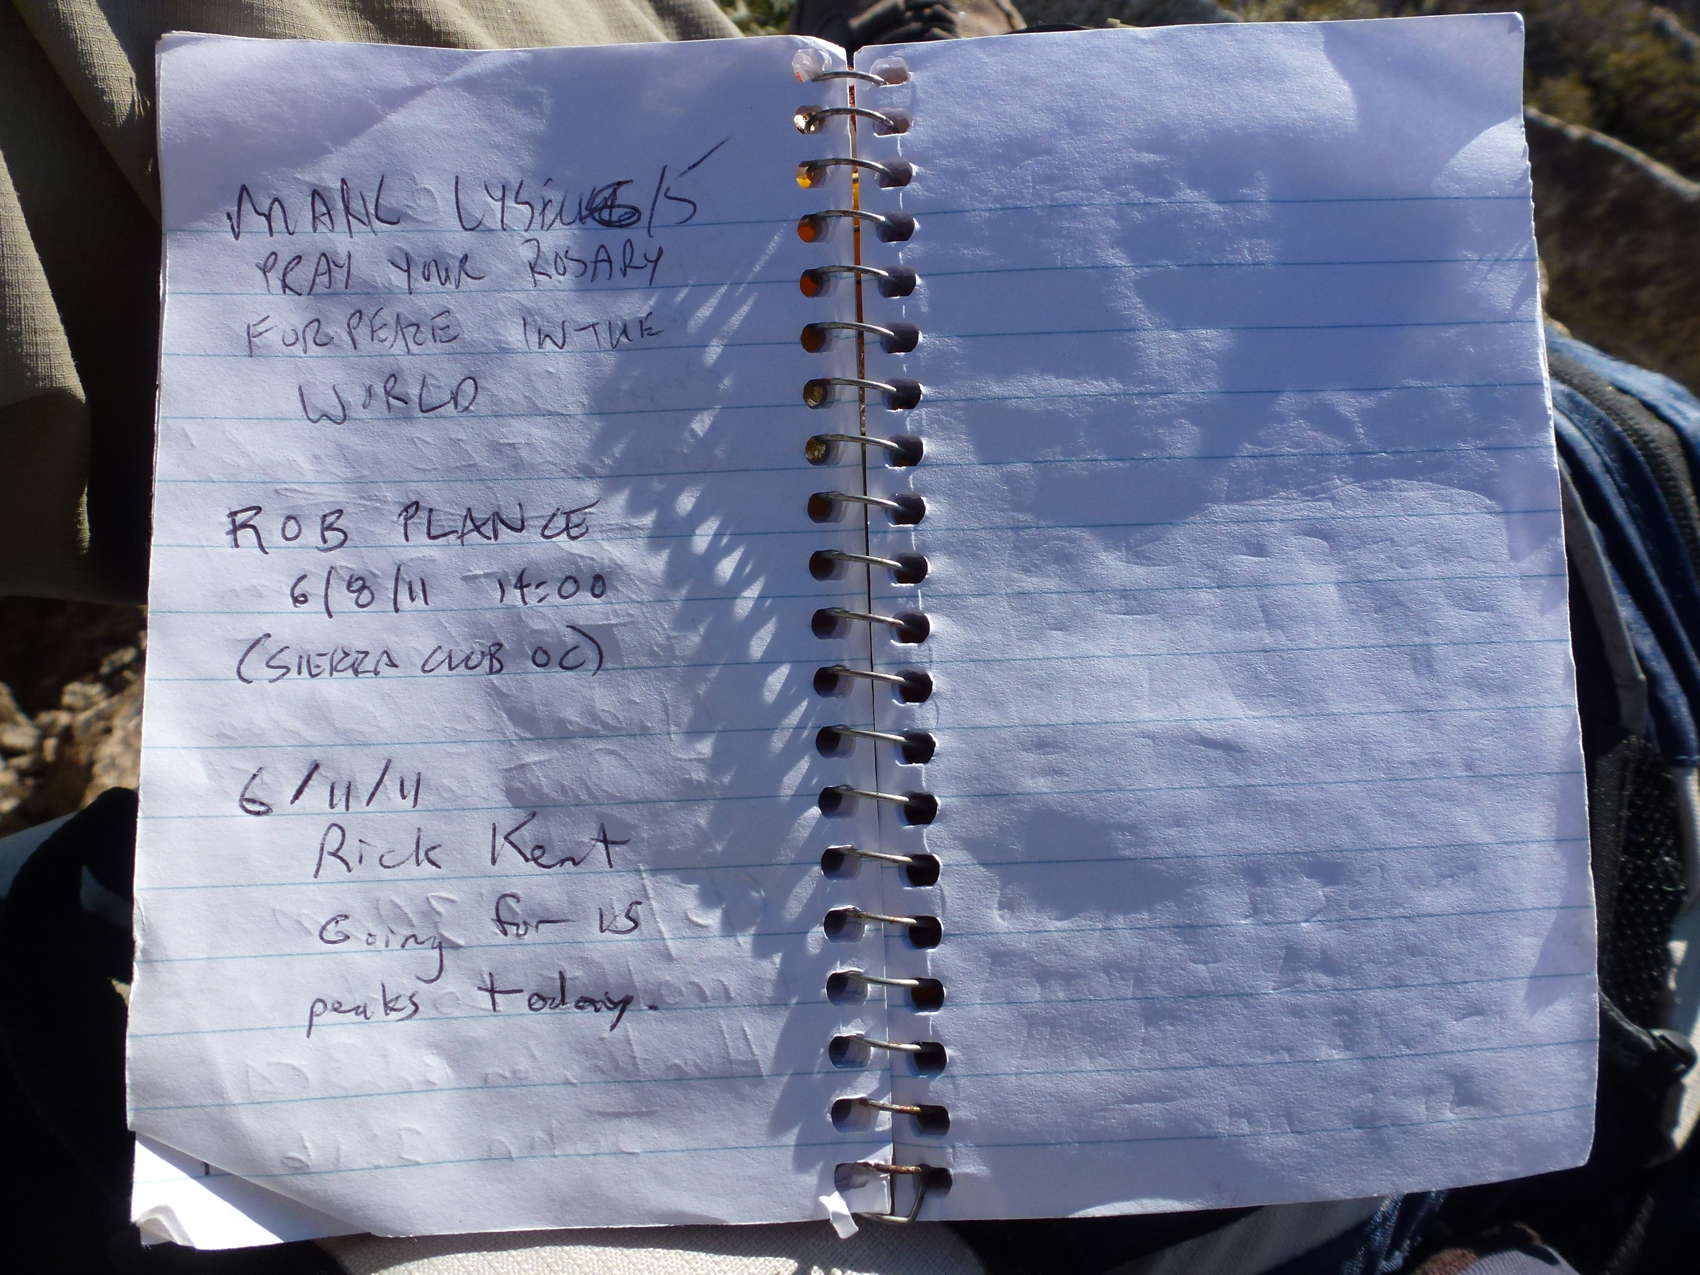 MARC 6/5
PRAY YOUR ROSARY
FOR PEACE IN THE
WORLD
ROB PLANCE
6/8/11 14:00
(SIERRA CLUB OC)
6/11/11
Rick Kent
Going for 15
peaks today.